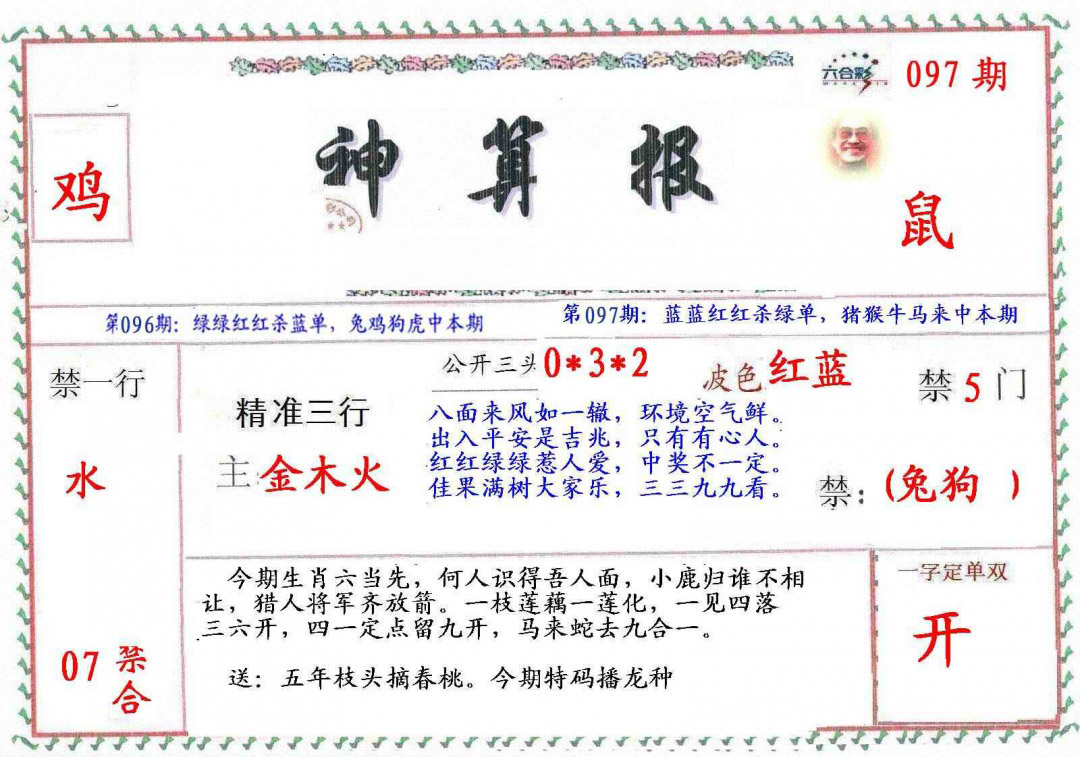 六合彩
097期
神算报
鸡
鼠
第096期：绿绿红红杀蓝单，兔鸡狗虎中本期
第097期：蓝蓝红红杀绿单，猪猴牛马来中本期
禁一行
水
07
禁合
精准三行
主:金木火
公开三头0*3*2
波色红蓝
八面来风如一辙，环境空气鲜。
出入平安是吉兆，只有有心人。
红红绿绿惹人爱，中奖不一定。
佳果满树大家乐，三三九九看。
禁5门
禁:(兔狗 )
今期生肖六当先，何人识得吾人面，小鹿归谁不相
让，猎人将军齐放箭。一枝莲藕一莲化，一见四落
三六开，四一定点留九开，马来蛇去九合一。
送：五年枝头摘春桃。今期特码播龙种
一字定单双
开